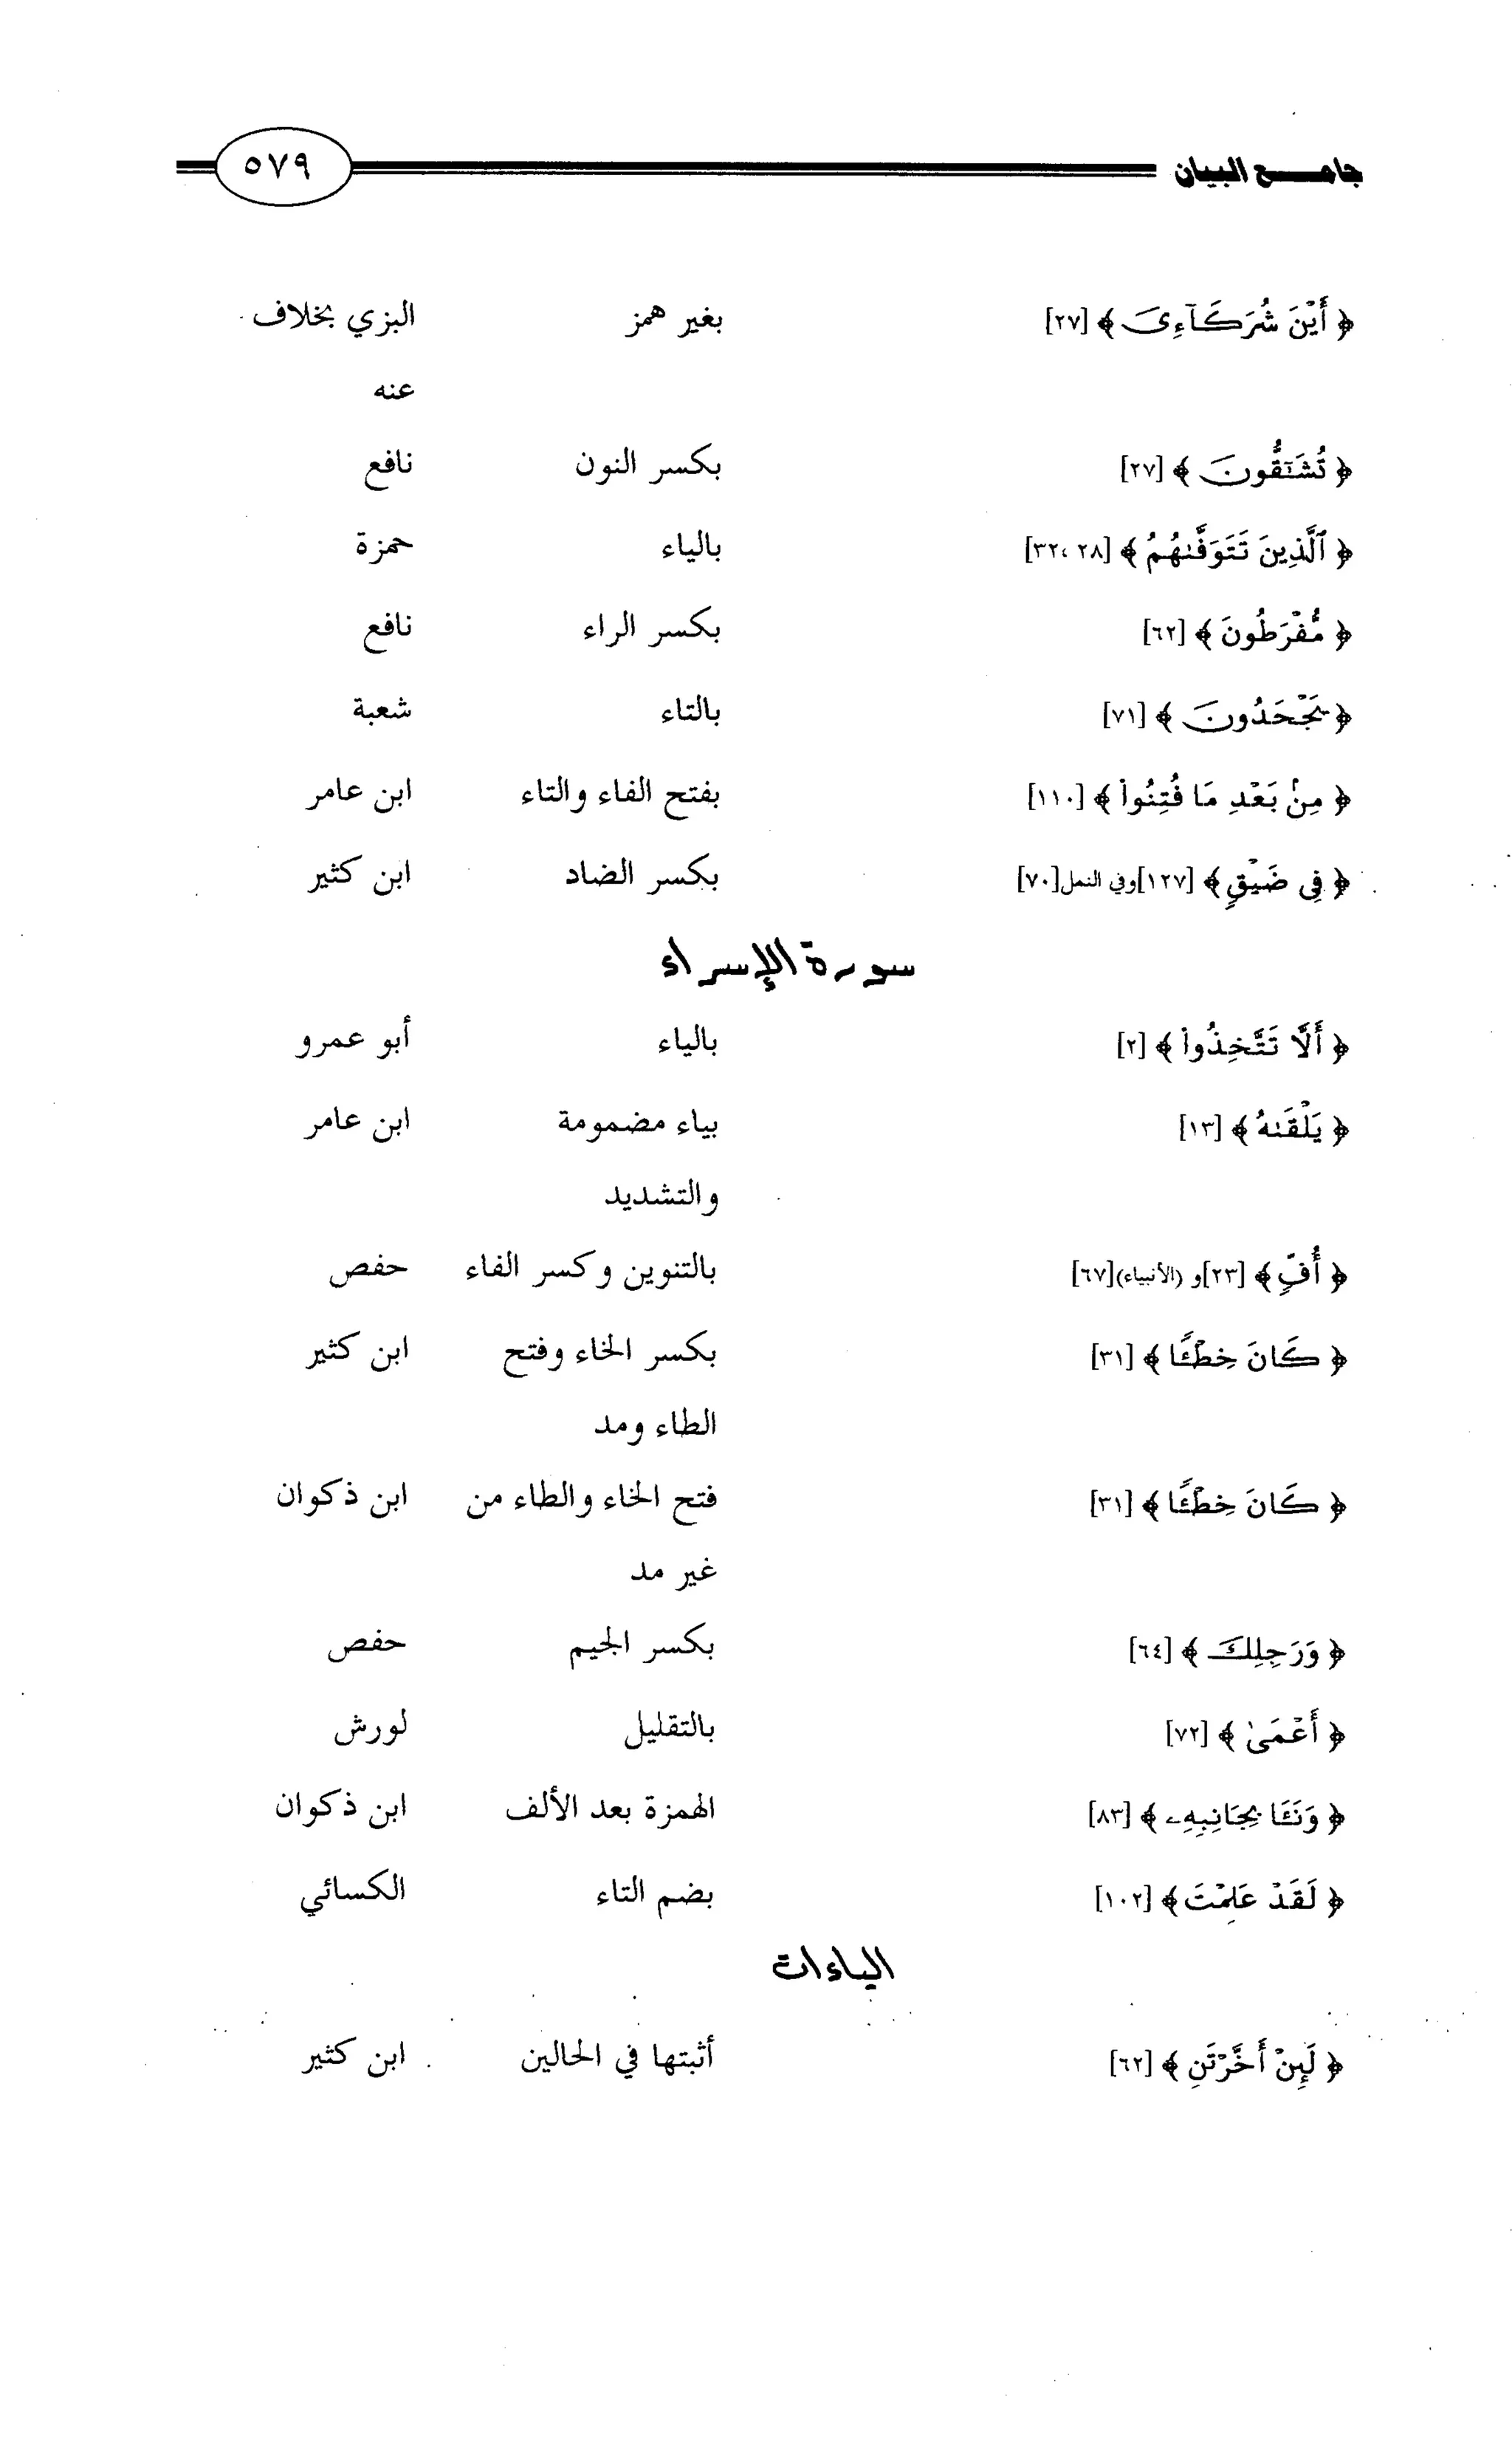 جامع البيان ٥٧٩
﴿ أَيْنَ شُرَكَآءِىَ ﴾ [٢٧] بغير همز البزي بخلاف
عنه
﴿ تُشَٰٓقُّونَ ﴾ [٢٧] بكسر النون نافع
﴿ ٱلَّذِينَ تَتَوَفَّىٰهُمُ ﴾ [٢٨، ٣٢] بالياء حمزة
﴿ مُّفْرَطُونَ ﴾ [٦٢] بكسر الراء نافع
﴿ يَجْحَدُونَ ﴾ [٧١] بالتاء شعبة
﴿ مِنۢ بَعْدِ مَا فُتِنُوا۟ ﴾ [١١٠] بفتح الفاء والتاء ابن عامر
﴿ فِى ضَيْقٍ ﴾ [١٢٧] وفي النمل [٧٠] بكسر الضاد ابن كثير
سورة الإسراء
﴿ أَلَّا تَتَّخِذُوا۟ ﴾ [٢] بالياء أبو عمرو
﴿ يَلْقَىٰهُ ﴾ [١٣] بياء مضمومة ابن عامر
والتشديد
﴿ أُفٍّ ﴾ [٢٣] و (الأنبياء) [٦٧] بالتنوين وكسر الفاء حفص
﴿ كَانَ خِطْـًٔا ﴾ [٣١] بكسر الخاء وفتح ابن كثير
الطاء ومد
﴿ كَانَ خِطْـًٔا ﴾ [٣١] فتح الخاء والطاء من ابن ذكوان
غير مد
﴿ وَرَجِلِكَ ﴾ [٦٤] بكسر الجيم حفص
﴿ أَعْمَىٰ ﴾ [٧٢] بالتقليل لورش
﴿ وَنَـَٔا بِجَانِبِهِۦ ﴾ [٨٣] الهمزة بعد الألف ابن ذكوان
﴿ لَقَدْ عَلِمْتَ ﴾ [١٠٢] بضم التاء الكسائي
الياءات
﴿ لَئِنْ أَخَّرْتَنِ ﴾ [٦٢] أثبتها في الحالين ابن كثير